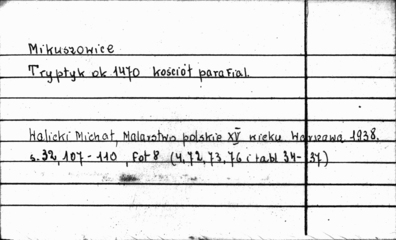 Mikuszowice
Tryptyk ok 1470 kościół parafial.
Walicki Michał, Malarstwo polskie XV wieku Warszawa 1938.
s. 32, 107-110, fot 8 (4, 72, 73, 76 i tabl 34-37)